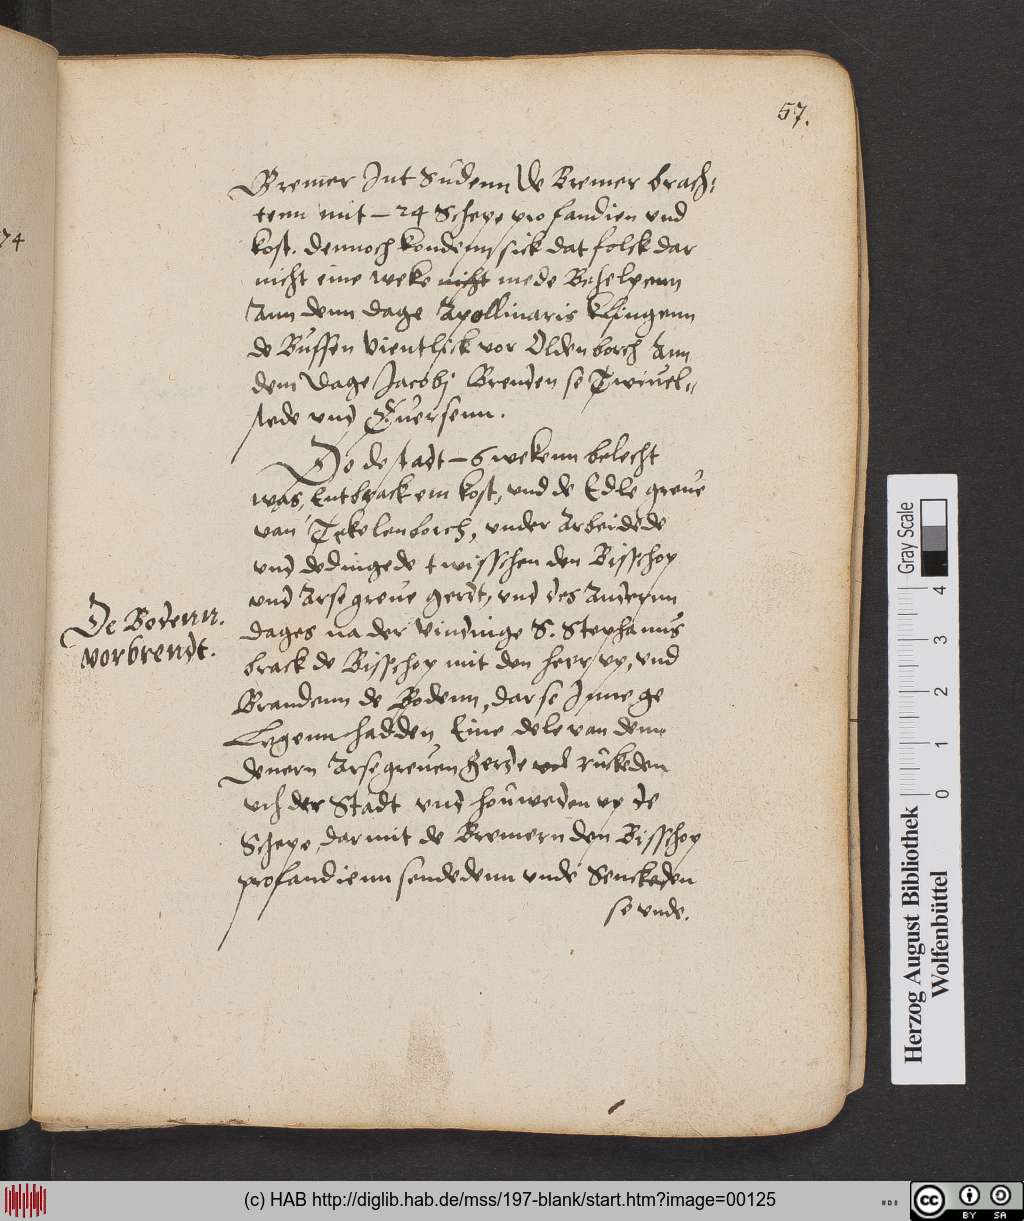 57.
74
Bremer Int Sudenn De Bremer brach:
tenn mit – 24 Schepe profandien vnd
kost. dennoch kondenn sick dat folck dar
nicht eine weke nicht mede Behelpenn
Ann denn dage Apollinaris klingenn
de Bussen vientlick vor Oldenborch Ann
dem Dage Jacobj Brenden se Twiuel„
stede vnd Euersenn.
Do de stadt – 6 wekenn belecht
was, Entbrack em kost, vnd de Edle greue
van Tekelenborch, vnder Arbeidede
vnd dedingede twisschen den Bisschop
vnd Arse greue Gerdt, vnd des Andernn
dages na der vindinge S. Stephanus
brack de Bisschop mit den heer vp, vnd
Brandenn de Bodenn, dar se Inne ge
Legenn hadden Eine dele van denn
denern Arsegreuen Gerde vnd rückeden
vth der Stadt vnd houweden vp de
Schepe, darmit de Bremern den Bisschop
profandienn sendedenn vnde Senckeden
se vnde.
De Bodenn.
vorbrendt.
Gray Scale
4
3
2
1
0
Herzog August Bibliothek
Wolfenbüttel
(c) HAB http://diglib.hab.de/mss/197-blank/start.htm?image=00125
cc
BY SA